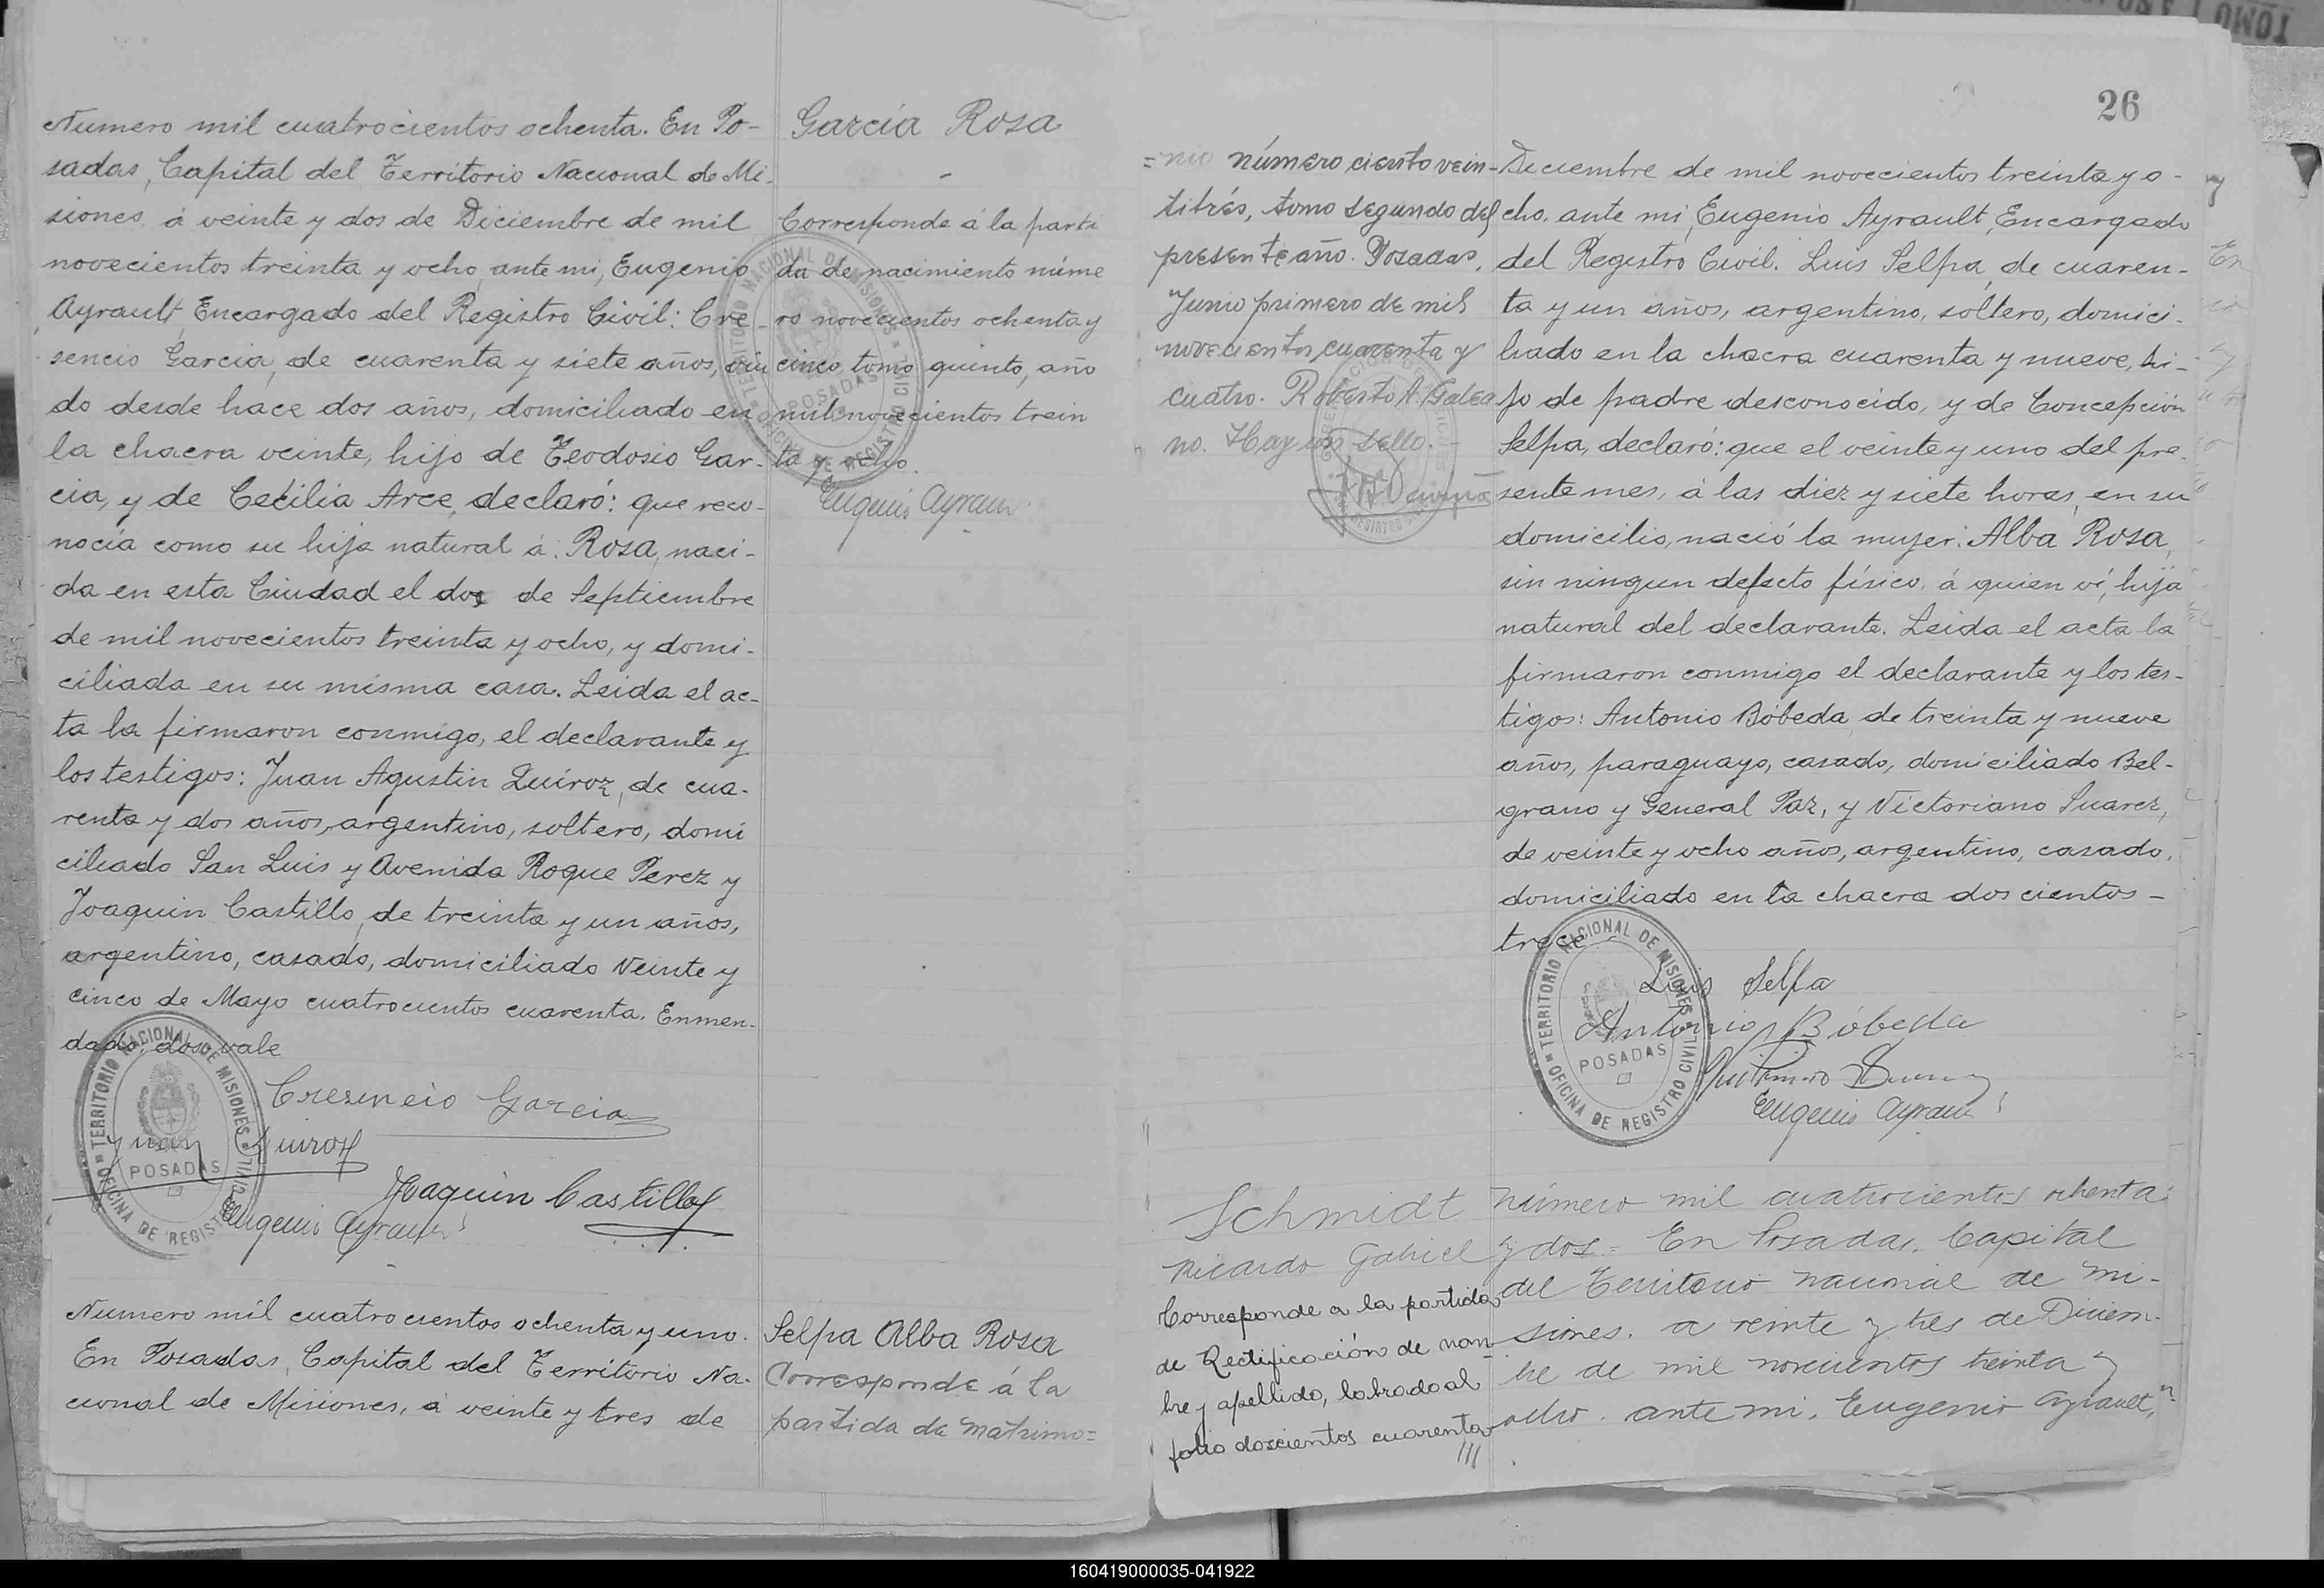 Numero mil cuatrocientos ochenta. En Po-
sadas, Capital del Territorio Nacional de Mi-
siones, á veinte y dos de Diciembre de mil
novecientos treinta y ocho, ante mi, Eugenio
Ayrault, Encargado del Registro Civil: Cre-
sencio Garcia, de cuarenta y siete años, viu
do desde hace dos años, domiciliado en
la chacra veinte, hijo de Teodosio Gar-
cia, y de Cecilia Arce, declaró: que reco-
nocia como su hija natural á: Rosa, naci-
da en esta Ciudad el dos de Septiembre
de mil novecientos treinta y ocho, y domi-
ciliada en su misma casa. Leida el ac-
ta la firmaron conmigo, el declarante y
los testigos: Juan Agustin Quiroz, de cua-
renta y dos años, argentino, soltero, domi
ciliado San Luis y Avenida Roque Perez y
Joaquin Castillo, de treinta y un años,
argentino, casado, domiciliado Veinte y
cinco de Mayo cuatrocientos cuarenta. Enmen-
dado: dos: vale
Cresencio Garcia
Juan Quiroz
Joaquin Castillo
Eugenio Ayrault
TERRITORIO NACIONAL DE MISIONES
POSADAS
OFICINA DE REGISTRO CIVIL
Garcia Rosa
-
Corresponde á la parti
da de nacimiento núme
ro novecientos ochenta y
cinco, tomo quinto, año
mil novecientos trein
ta y ocho.
Eugenio Ayrault
TERRITORIO NACIONAL DE MISIONES
POSADAS
OFICINA DE REGISTRO CIVIL
Numero mil cuatrocientos ochenta y uno.
En Posadas, Capital del Territorio Na-
cional de Misiones, á veinte y tres de
Selpa Alba Rosa
Corresponde á la
partida de matrimo=
26
=nio número ciento vein-
titrés, tomo segundo del
presente año. Posadas,
Junio primero de mil
novecientos cuarenta y
cuatro. Roberto A. Galea
no. Hay un sello.
Diciembre de mil novecientos treinta y o-
cho, ante mi, Eugenio Ayrault, Encargado
del Registro Civil. Luis Selpa, de cuaren-
ta y un años, argentino, soltero, domici-
liado en la chacra cuarenta y nueve, hi-
jo de padre desconocido, y de Concepción
Selpa, declaró: que el veinte y uno del pre-
sente mes, á las diez y siete horas, en su
domicilio, nació la mujer: Alba Rosa,
sin ningun defecto físico, á quien ví, hija
natural del declarante. Leida el acta la
firmaron conmigo el declarante y los tes-
tigos: Antonio Bóbeda, de treinta y nueve
años, paraguayo, casado, domiciliado Bel-
grano y General Paz, y Victoriano Suarez,
de veinte y ocho años, argentino, casado,
domiciliado en la chacra dos cientos -
trece
Luis Selpa
Antonio Bóbeda
Eugenio Ayrault
TERRITORIO NACIONAL DE MISIONES
POSADAS
OFICINA DE REGISTRO CIVIL
Schmidt
Ricardo Gabriel
Corresponde a la partida
de Rectificación de nom
bre y apellido, labrado al
folio doscientos cuarenta
///
número mil cuatrocientos ochenta
y dos = En Posadas, Capital
del Territorio nacional de Mi-
siones, a veinte y tres de Diciem-
bre de mil novecientos treinta y
ocho, ante mi, Eugenio Ayrault,
160419000035-041922